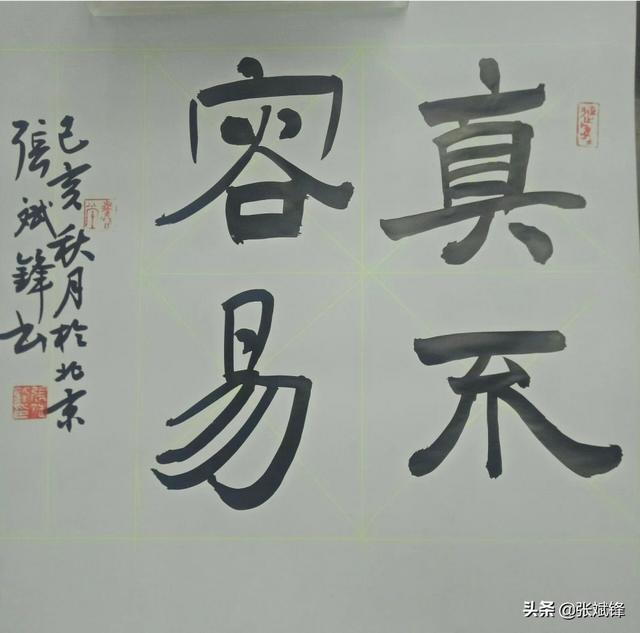 真不
容易
己亥秋月於北京
張斌鋒书
头条 @张斌锋